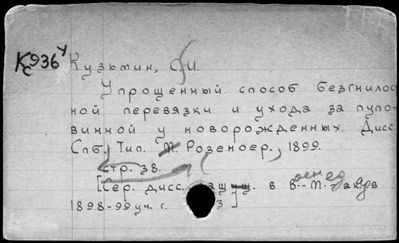 К936 у
с
Кузьмин, С.И.
Упрощенный способ безгнилос
ной перевязки и ухода за пупо-
винной у новорожденных. Дисс
Спб. Тип. М. Розеноер., 1899.
стр. 38.
[Сер. дисс. в В.-М.
1898-99 уч. г. 3]